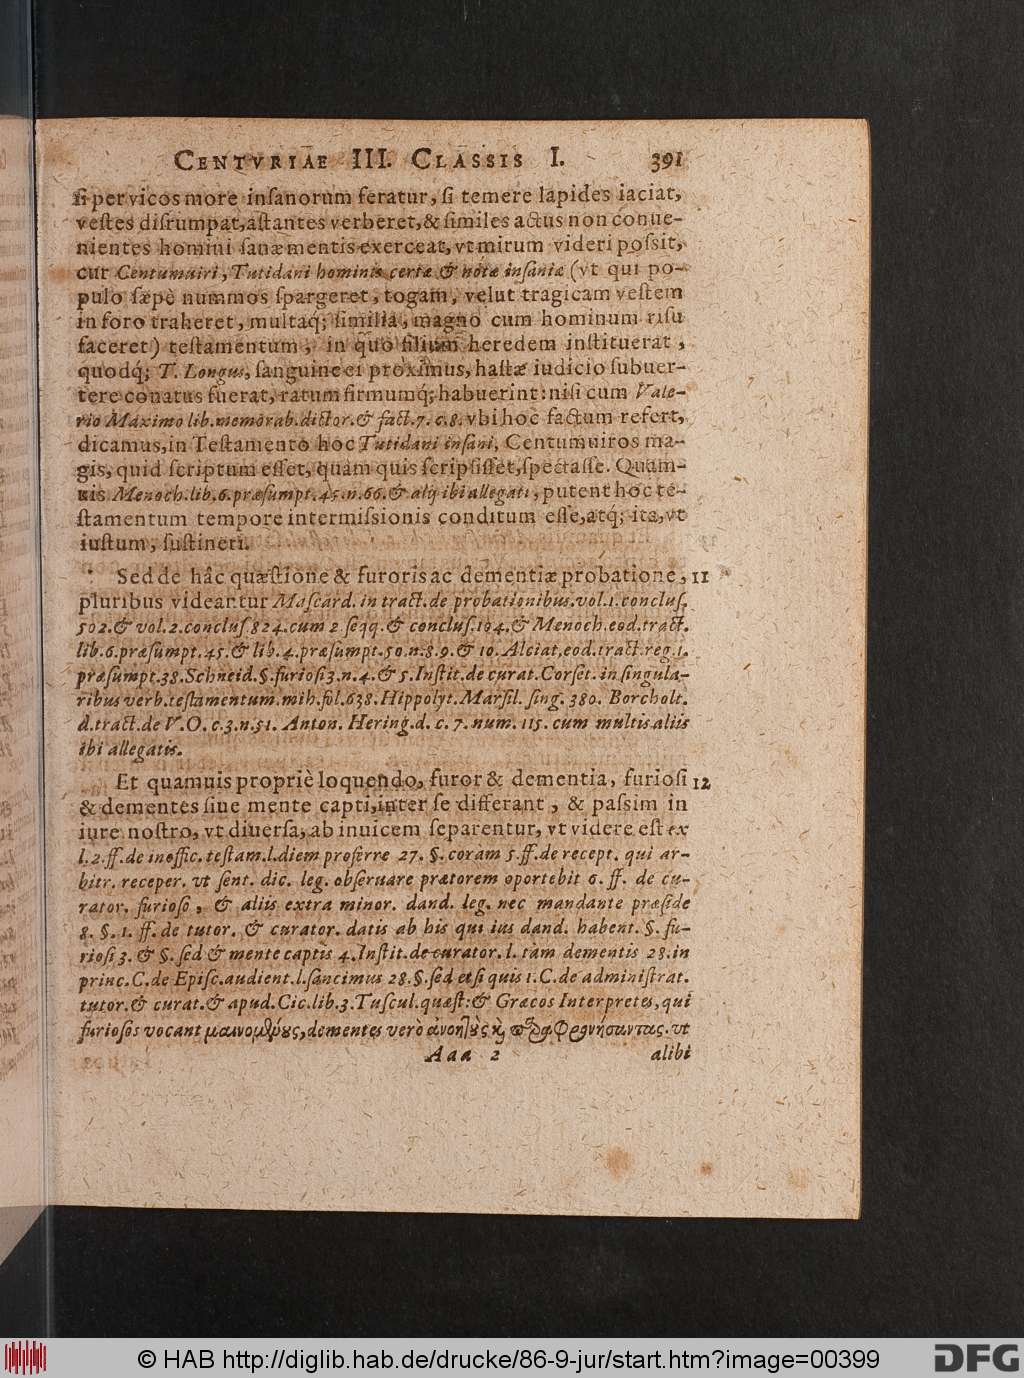 CENTVRIAE III. CLASSIS I. 391
ſi per vicos more inſanorum feratur, ſi temere lapides iaciat,
veſtes diſrumpat, aſtantes verberet, & ſimiles actus non conue-
nientes homini ſanæ mentis exerceat, vt mirum videri poſsit,
cur Centumuiri, Tutidani hominis certæ & notæ inſaniæ (vt qui po-
pulo ſæpè nummos ſpargeret, togam, velut tragicam veſtem
in foro traheret, multaq́; ſimilia, magno cum hominum riſu
faceret) teſtamentum, in quo filium heredem inſtituerat,
quodq́; T. Longus, ſanguine ei proximus, haſtæ iudicio ſubuer-
tere conatus fuerat, ratum firmumq́; habuerint: niſi cum Vale-
rio Maximo lib. memorab. dictor. & fact. 7. c. 8. vbi hoc factum refert,
dicamus, in Teſtamento hoc Tutidani inſani, Centumuiros ma-
gis, quid ſcriptum eſſet, quàm quis ſcripſiſſet, ſpectaſſe. Quam-
uis Menoch. lib. 6. præſumpt. 45. n. 66. & alij ibi allegati, putent hoc te-
ſtamentum tempore intermiſsionis conditum eſſe, atq́; ita, vt
iuſtum, ſuſtineri.
Sed de hâc quæſtione & furoris ac dementiæ probatione, 11
pluribus videantur Maſcard. in tract. de probationibus. vol. 1. concluſ.
502. & vol. 2. concluſ. 824. cum 2 ſeqq. & concluſ. 104. & Menoch. eod. tract.
lib. 6. præſumpt. 45. & lib. 4. præſumpt. 50. n. 8. 9. & 10. Alciat. eod. tract. reg. 1.
præſumpt. 38. Schneid. §. furioſi 3. n. 4. & 5. Inſtit. de curat. Corſet. in ſingula-
ribus verb. teſtamentum. mih. fol. 638. Hippolyt. Marſil. ſing. 380. Borcholt.
d. tract. de V. O. c. 3. n. 51. Anton. Hering. d. c. 7. num. 115. cum multis aliis
ibi allegatis.
Et quamuis propriè loquendo, furor & dementia, furioſi 12
& dementes ſiue mente capti, inter ſe differant, & paſsim in
iure noſtro, vt diuerſa, ab inuicem ſeparentur, vt videre eſt ex
l. 2. ff. de inoffic. teſtam. l. diem proferre 27. §. coràm 5. ff. de recept. qui ar-
bitr. receper. vt ſent. dic. leg. obſeruare prætorem oportebit 6. ff. de cu-
rator. furioſo, & aliis extra minor. dand. leg. nec mandante præſide
8. §. 1. ff. de tutor. & curator. datis ab his qui ius dand. habent. §. fu-
rioſi 3. & §. ſed & mente captis 4. Inſtit. de curator. l. tàm dementis 28. in
princ. C. de Epiſc. audient. l. ſancimus 28. §. ſed etſi quis 1. C. de adminiſtrat.
tutor. & curat. & apud. Cic. lib. 3. Tuſcul. quæſt: & Græcos Interpretes, qui
furioſos vocant μαινομῆύους, dementes verò ἀνοήτȣς κ̀ παραφρονήσαντας. vt
Aaa 2 alibi
© HAB http://diglib.hab.de/drucke/86-9-jur/start.htm?image=00399 DFG